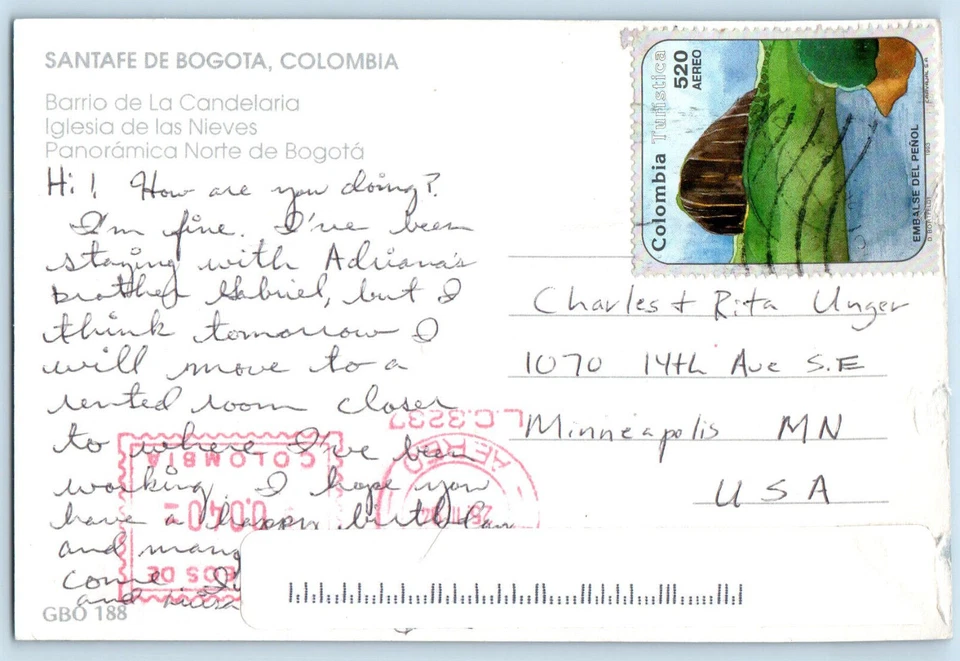 SANTAFE DE BOGOTA, COLOMBIA
Barrio de La Candelaria
Iglesia de las Nieves
Panorámica Norte de Bogotá
Hi! How are you doing?
I'm fine. I've been
staying with Adriana's
brother Gabriel, but I
think tomorrow I
will move to a
rented room closer
to where I've been
working. I hope you
have a happy birthday
and many
come
and
GBO 188
Colombia Turística
520
AEREO
EMBALSE DEL PEÑOL
1993
Charles + Rita Unger
1070 14th Ave S.E
Minneapolis MN
USA
L.C. 3237
AEREO
COLOMBIA
OS DE